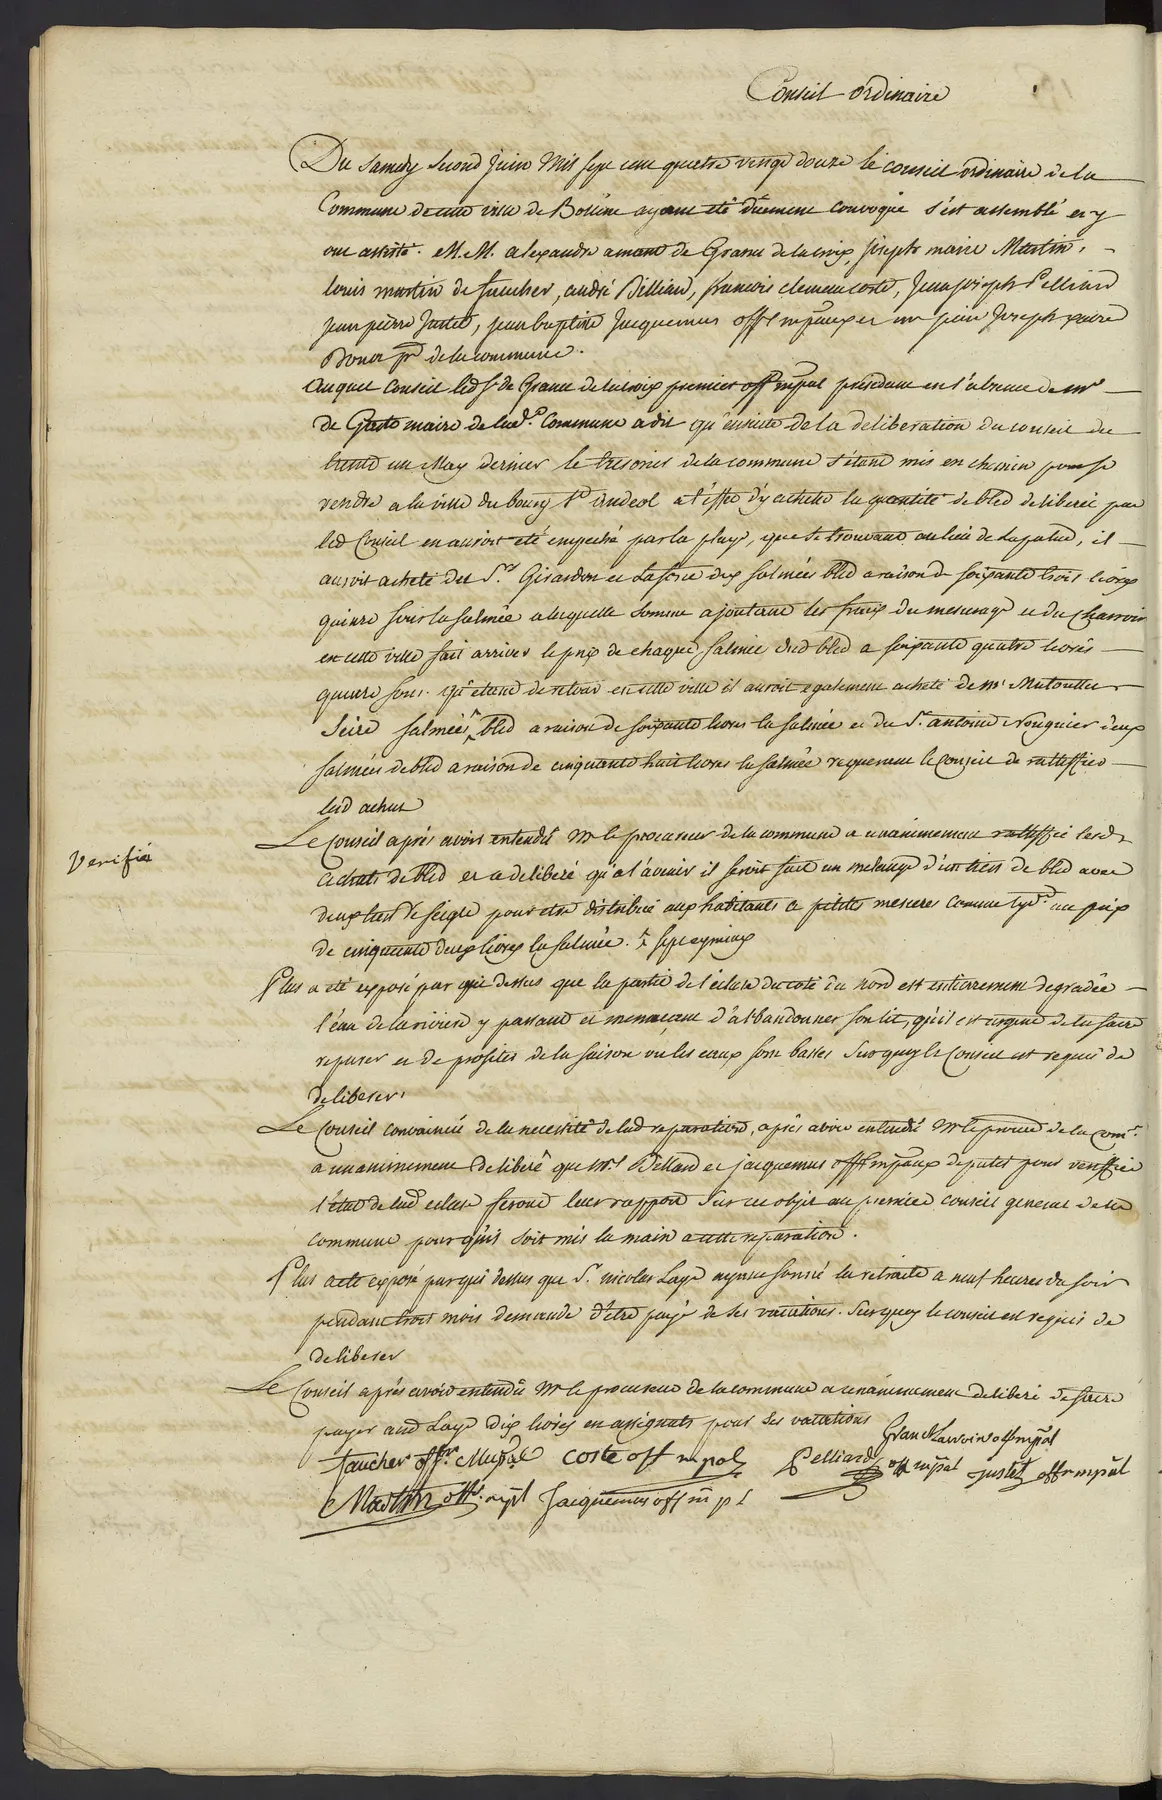 Conseil ordinaire
Du samedy second juin mil sept cent quatre vengt douze le conseil ordinaire de la
Commune de cette ville de Bollène ayant été düement convoqué s'est assemblé et y
ont assisté. M.M. alexandre amant de Granet delacroix, joseph marie Martin,
louis martin de faucher, andré Billiard, françois clement coste, jean joseph Pelliard
jean pierre justet, jean baptiste jacquemus off. mpaux et joseph
pr. de la commune.
Auquel Conseil led sr. de Granet delacroix premier off mpal présidant en l'absence de mr
de maire de lad. Commune a dit qu'ensuite de la deliberation du conseil du
trente un May dernier le tresorier de la commune s'étant mis en chemin pour se
rendre a la ville du bourg St andeol a l'effet d'y acheter la quantité de bled deliberée par
led Conseil en auroit été empeché par la pluye, que se trouvant au lieu de Lapalud, il
auroit acheté des Srs. Girardon et Laforce dix salmées bled a raison de soixante trois livres
quinze sous la salmée a laquelle somme ajoutant les fraix du mesurage et du charroir
en cette ville fait arriver le prix de chaque salmée dud bled a soixante quatre livres
quinze sous. qu'étant de retour en cette ville il auroit egalement acheté de mr
seize salmées bled a raison de soixante livres la salmée et du Sr. antoine Nouguier deux
salmées de bled a raison de cinquante huit livres la salmée requerant le Conseil de rattiffier
lesd achats
Le Conseil après avoir entendu Mr le procureur de la commune a unanimement rattiffié lesd
achats de bled et a deliberé qu'a l'avenir il seroit fait un melange d'un tiers de bled avec
deux tiers de seigle pour etre distribué aux habitants a petites mesures comme au prix
de cinquante deux livres la salmée.
Verifié
Plus a été exposé par qui dessus que la partie de l'écluse du coté du nord est entierrement degradée
l'eau de la riviere y passant et menaçant d'abbandonner son lit, qu'il est urgent de la faire
reparer et de profiter de la saison ou les eaux sont basses sur quoy le Conseil est requis de
deliberer.
Le Conseil convaincu de la necessité de lad reparation, après avoir entendu Mr le procur de la com.
a unanimement deliberé que Mrs Billiard et jacquemus off mpaux deputés pour veriffier
l'état de lad ecluse feront leur rapport sur cet objet au premier conseil general de la
commune pour qu'il soit mis la main a cette reparation.
Plus a été exposé par qui dessus que Sr. nicolas Laye ayant sonné la retraite a neuf heures du soir
pendant trois mois demande d'être payé de ses vacations. sur quoy le conseil est requis de
deliberer
Le Conseil après avoir entendu Mr le procureur de la commune a unanimement deliberé de faire
payer aud Laye dix livres en assignats pour ses vacations
Faucher offr. Mupal coste off mpal Pelliard off mpal justet off mpal
Martin off. mpl Jacquemus off mpl